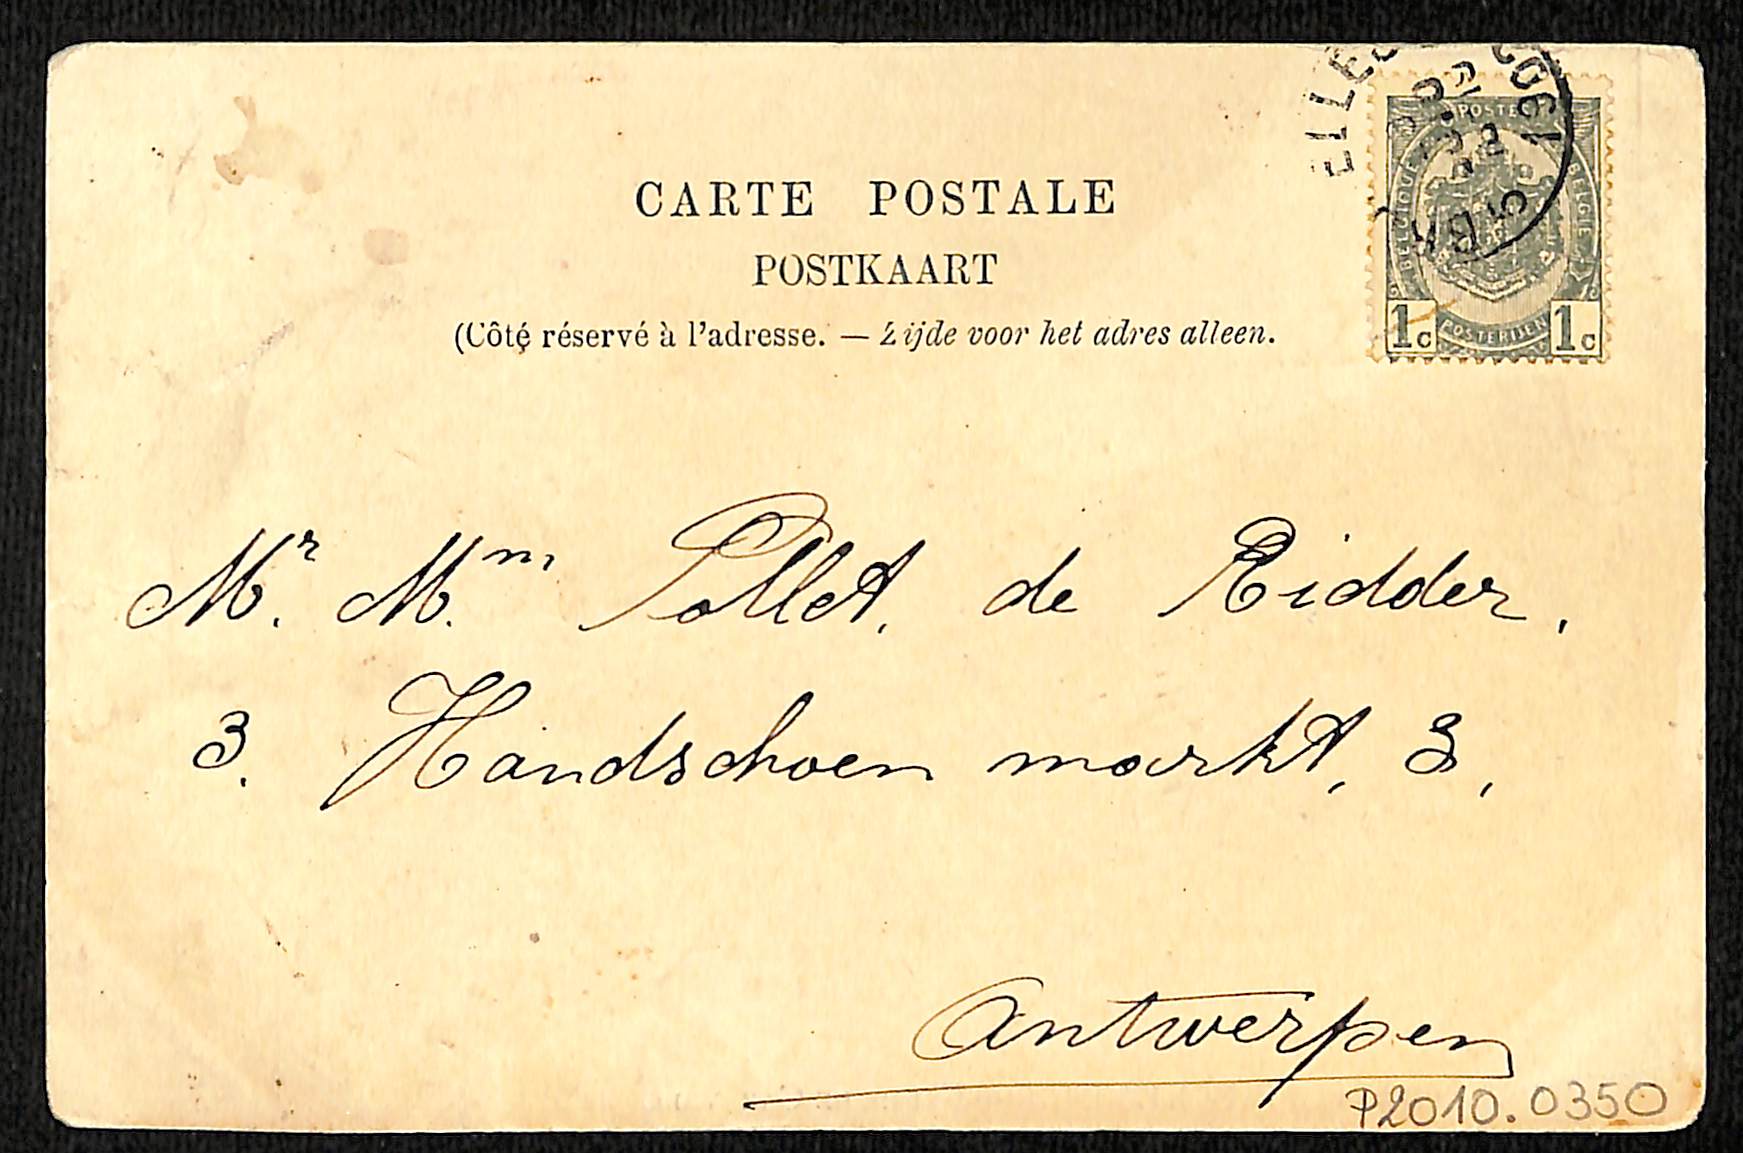 CARTE POSTALE
POSTKAART
(Côté réservé à l'adresse. — Zijde voor het adres alleen.
POSTES
BELGIQUE
BELGIE
POSTERIJEN
1c 1c
1902
Mr. Mm. Pollet. de Ridder,
3. Handschoen markt, 3,
Antwerpen
P2010.0350